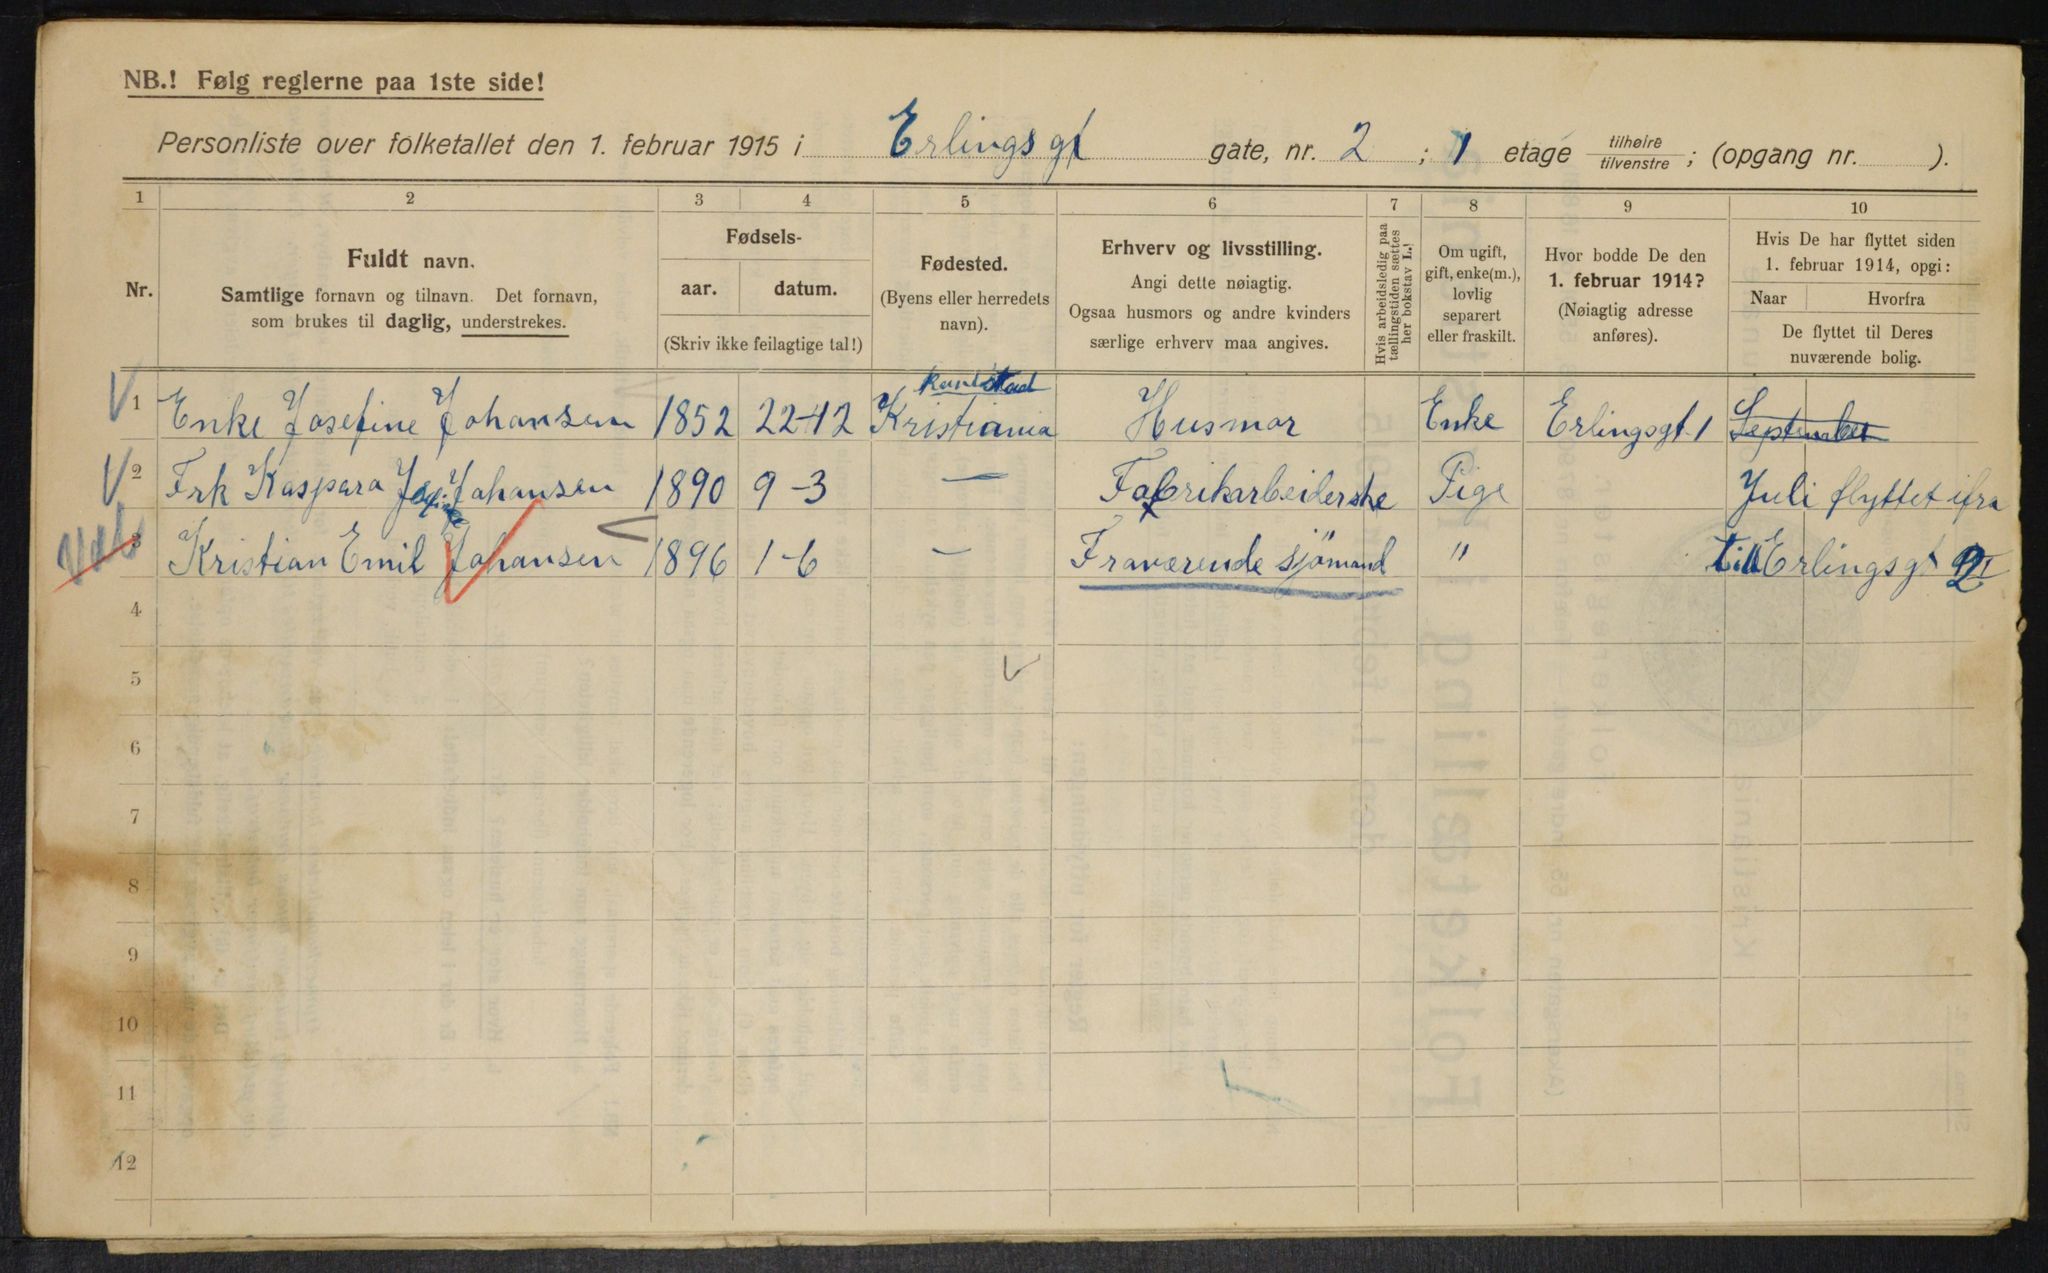 NB.! Følg reglerne paa 1ste side!
Personliste over folketallet den 1. februar 1915 i Erlingsgt gate, nr. 2 ; 1 etage tilhøire / tilvenstre ; (opgang nr. ).
1 2 3 4 5 6 7 8 9 10
Nr.
Fuldt navn.
Samtlige fornavn og tilnavn. Det fornavn,
som brukes til daglig, understrekes.
Fødsels-
aar. datum.
(Skriv ikke feilagtige tal!)
Fødested.
(Byens eller herredets
navn).
Erhverv og livsstilling.
Angi dette nøiagtig.
Ogsaa husmors og andre kvinders
særlige erhverv maa angives.
Hvis arbeidsledig paa
tællingstiden sættes
her bokstav L.!
Om ugift,
gift, enke(m.),
lovlig
separert
eller fraskilt.
Hvor bodde De den
1. februar 1914?
(Nøiagtig adresse
anføres).
Hvis De har flyttet siden
1. februar 1914, opgi:
Naar Hvorfra
De flyttet til Deres
nuværende bolig.
1 Enke Josefine Johansen 1852 22-12 Kristiania Husmor Enke Erlingsgt. 1 September
2 Frk Kaspara Johansen 1890 9-3 — Fabrikarbeiderske Pige Juli flyttet ifra
3 Kristian Emil Johansen 1896 1-6 — Fraværende sjömand " till Erlingsgt 2
4
5
6
7
8
9
10
11
12